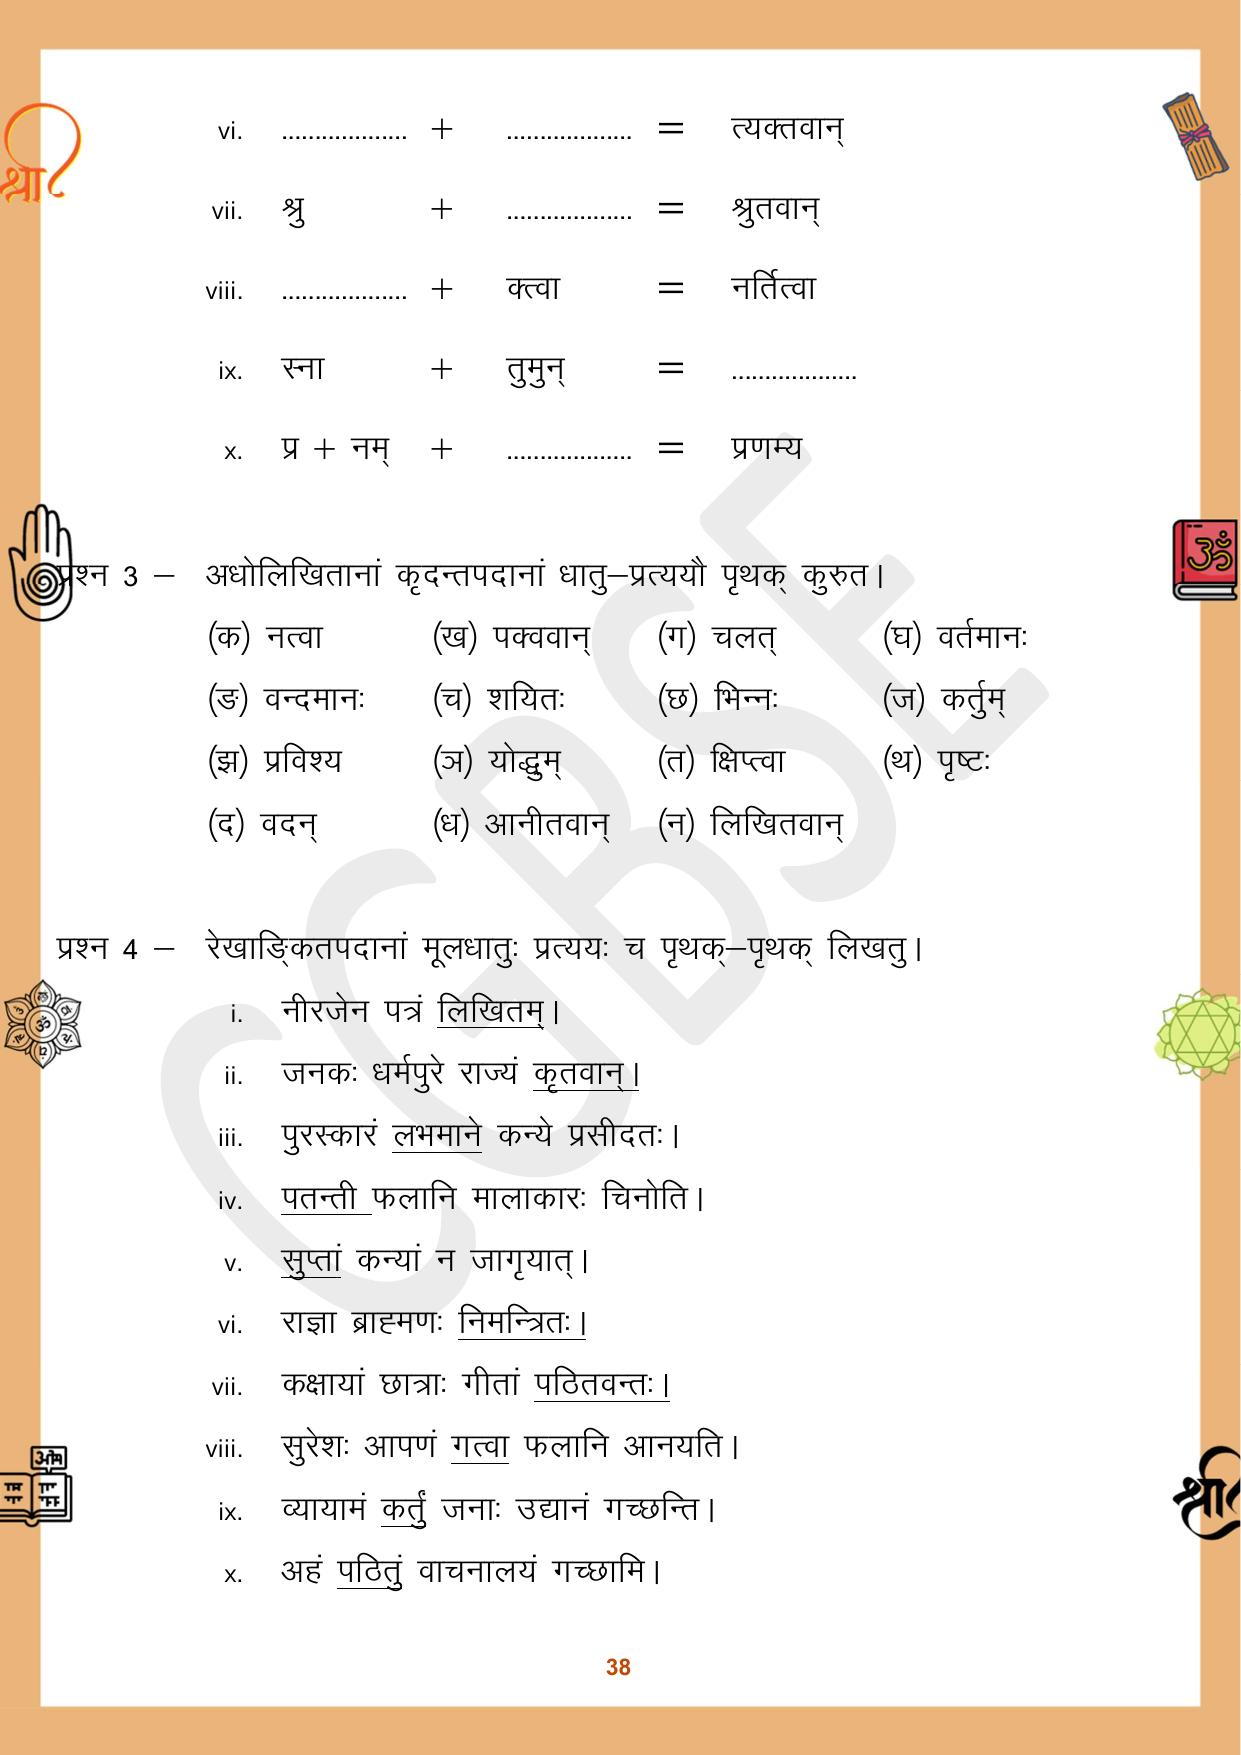 vi. ................... + ................... = त्यक्तवान्
vii. श्रु + ................... = श्रुतवान्
viii. ................... + क्त्वा = नर्तित्वा
ix. स्ना + तुमुन् = ...................
x. प्र + नम् + ................... = प्रणम्य
प्रश्न 3 – अधोलिखितानां कृदन्तपदानां धातु–प्रत्ययौ पृथक् कुरुत।
(क) नत्वा (ख) पक्ववान् (ग) चलत् (घ) वर्तमानः
(ङ) वन्दमानः (च) शयितः (छ) भिन्नः (ज) कर्तुम्
(झ) प्रविश्य (ञ) योद्धुम् (त) क्षिप्त्वा (थ) पृष्टः
(द) वदन् (ध) आनीतवान् (न) लिखितवान्
प्रश्न 4 – रेखाङ्कितपदानां मूलधातुः प्रत्ययः च पृथक्–पृथक् लिखतु।
i. नीरजेन पत्रं लिखितम्।
ii. जनकः धर्मपुरे राज्यं कृतवान्।
iii. पुरस्कारं लभमाने कन्ये प्रसीदतः।
iv. पतन्ती फलानि मालाकारः चिनोति।
v. सुप्तां कन्यां न जागृयात्।
vi. राज्ञा ब्राह्मणः निमन्त्रितः।
vii. कक्षायां छात्राः गीतां पठितवन्तः।
viii. सुरेशः आपणं गत्वा फलानि आनयति।
ix. व्यायामं कर्तुं जनाः उद्यानं गच्छन्ति।
x. अहं पठितुं वाचनालयं गच्छामि।
38
CGBSE
श्री
ॐ
ॐ
ओम
श्री